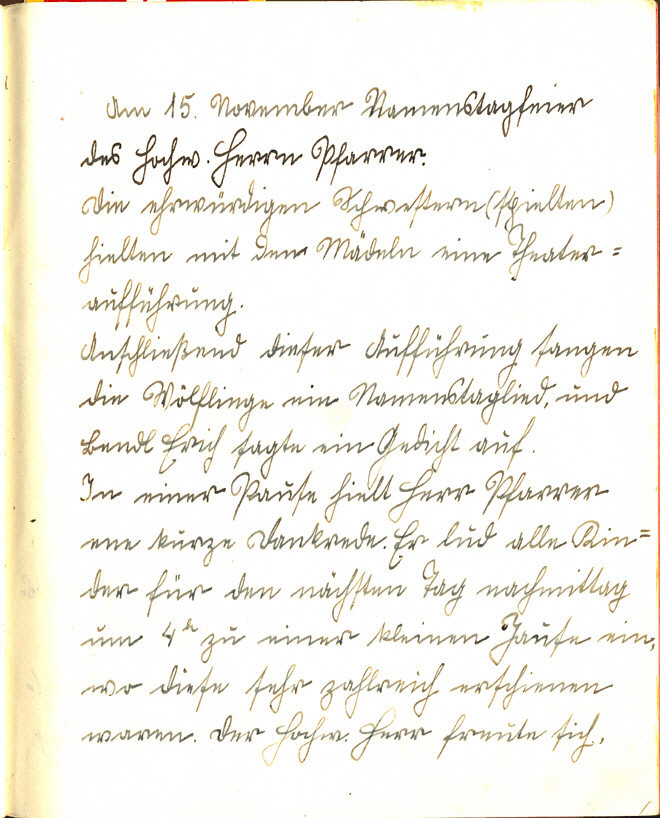 Am 15. November Namenstagfeier
des hochw. Herrn Pfarrer.
Die ehrwürdigen Schwestern (spielten)
hielten mit den Mädeln eine Theater=
aufführung.
Anschließend dieser Aufführung sangen
die Wölflinge ein Namenstaglied, und
Bendl Erich sagte ein Gedicht auf.
In einer Pause hielt Herr Pfarrer
ene kurze Dankrede. Er lud alle Kin=
der für den nächsten Tag nachmittag
um 4h zu einer kleinen Jause ein,
wo diese sehr zahlreich erschienen
waren. Der hochw. Herr freute sich,